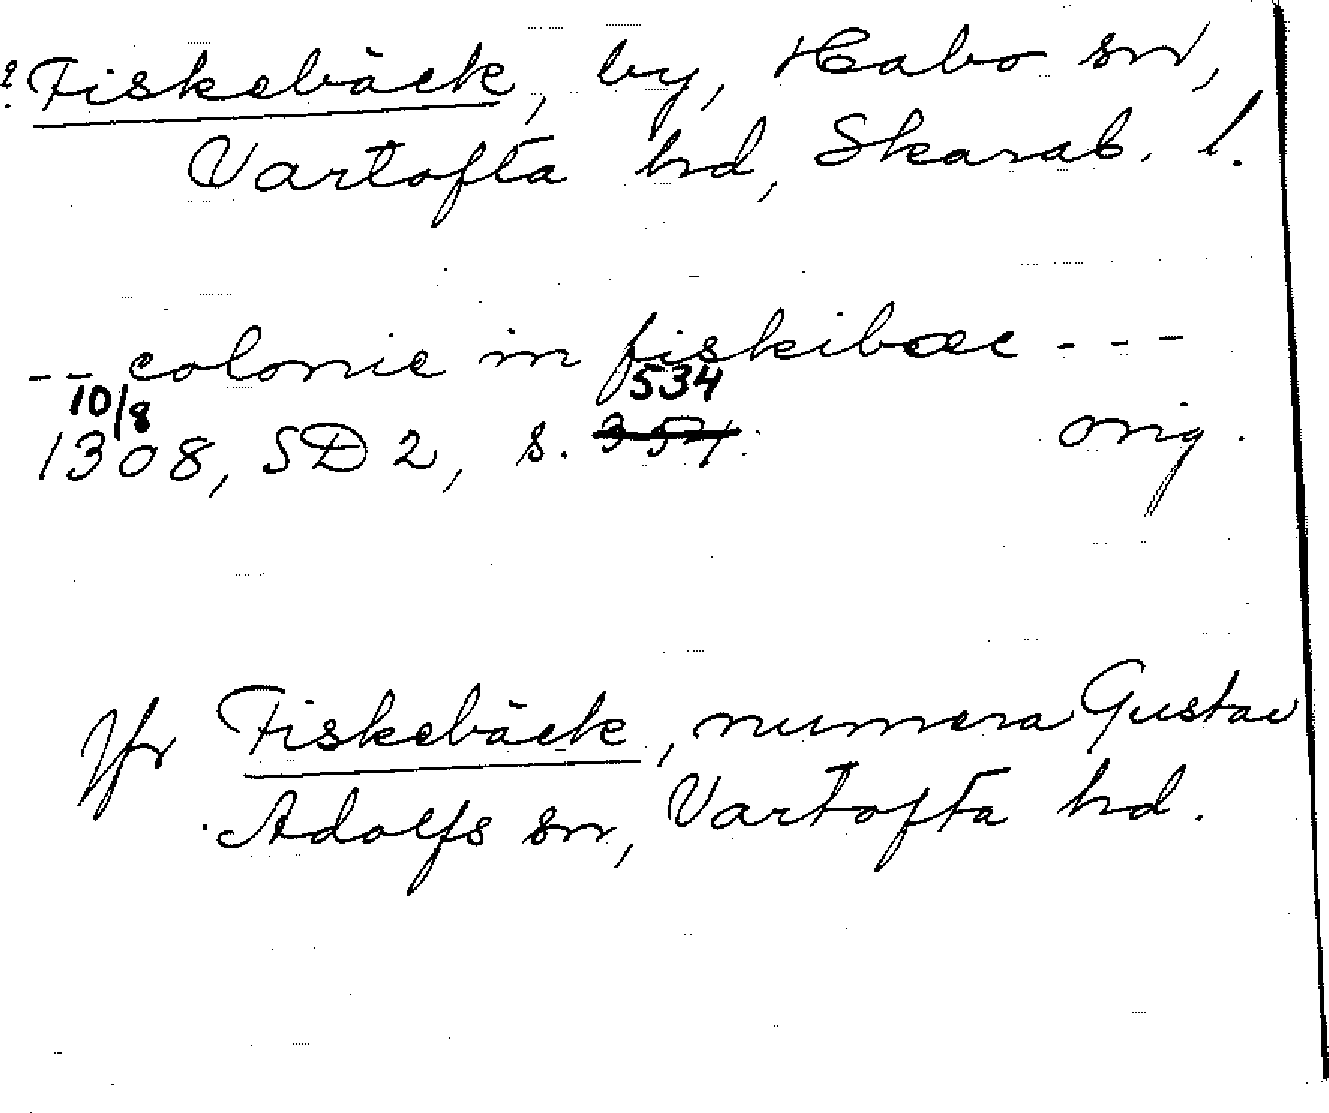 ? Fiskebäck, by, Habo sn,
Vartofta hd, Skarab. l.
-- colonie in fiskibæc ---
10/8 534
1308, SD 2, s. 351. orig.
Jfr Fiskebäck, numera Gustav
Adolfs sn, Vartofta hd.